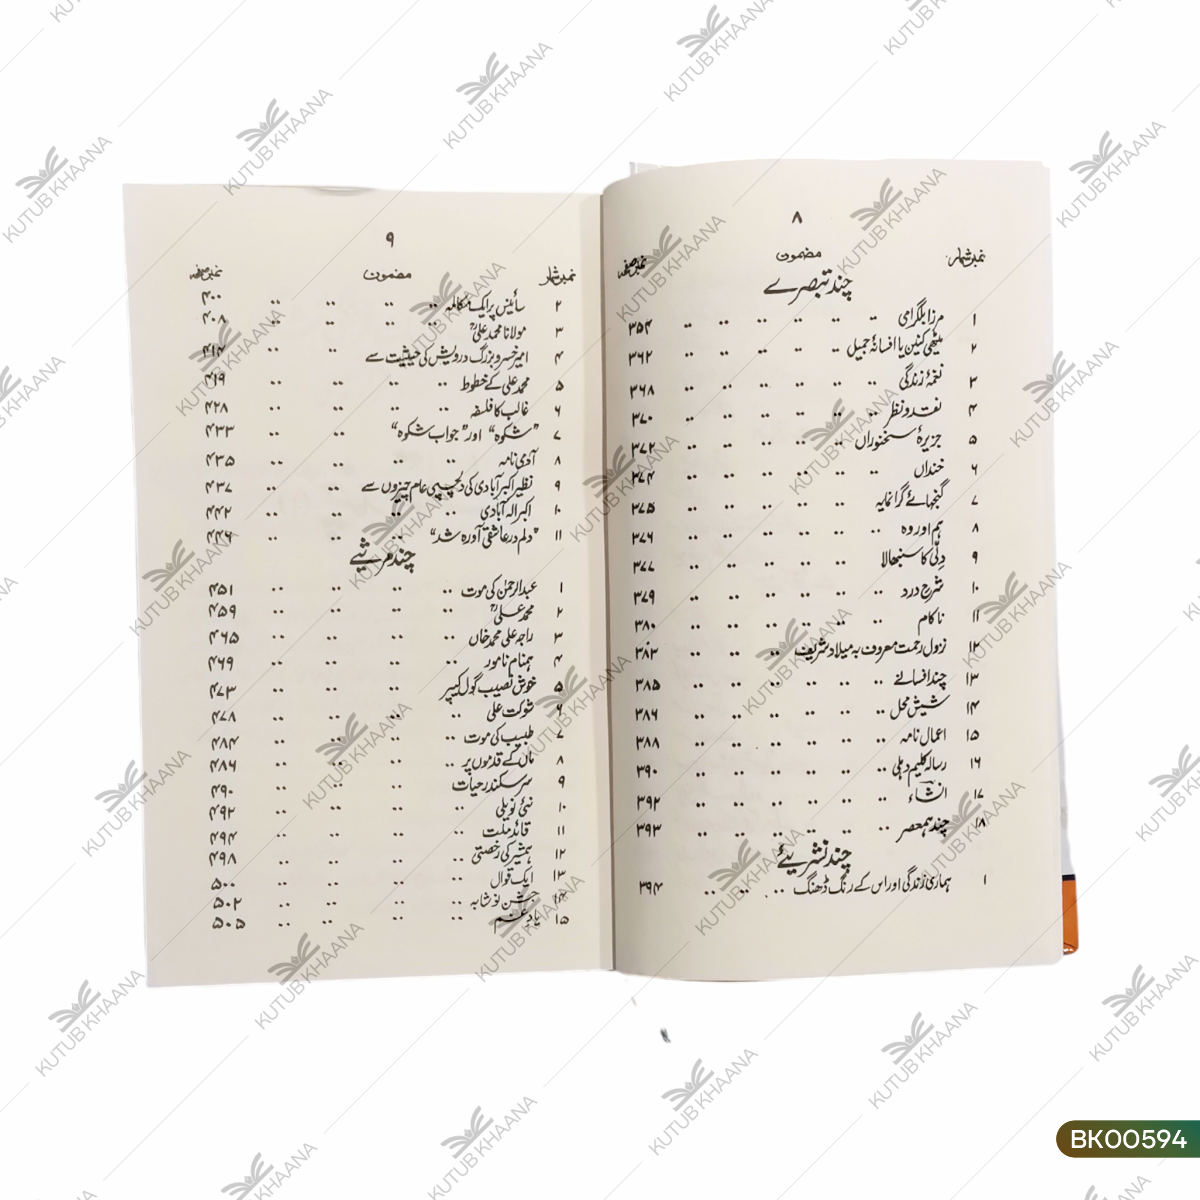 ۸
نمبر شمار مضمون نمبر صفحہ
چند تبصرے
۱ مرزا بلگرامی ۳۵۴
۲ میٹھی کنین یا افسانۂ جمیل ۳۶۲
۳ نغمۂ زندگی ۳۶۸
۴ نقد و نظر ۳۷۰
۵ جزیرۂ سخنوراں ۳۷۲
۶ خنداں ۳۷۴
۷ گنجہائے گرانمایہ ۳۷۵
۸ ہم اور وہ ۳۷۶
۹ دلّی کا سنبھالا ۳۷۷
۱۰ شرحِ درد ۳۷۹
۱۱ ناکام ۳۸۰
۱۲ نزول رحمت معروف بہ میلاد شریف ۳۸۳
۱۳ چند افسانے ۳۸۵
۱۴ شیش محل ۳۸۶
۱۵ اعمال نامہ ۳۸۸
۱۶ رسالہ کلیم دہلی ۳۹۰
۱۷ انشاء ۳۹۲
۱۸ چند ہمعصر ۳۹۳
چند نشریئے
۱ ہماری زندگی اور اس کے رنگ ڈھنگ ۳۹۴
۹
نمبر شمار مضمون نمبر صفحہ
۲ سائنس پر ایک مکالمہ ۴۰۰
۳ مولانا محمد علیؒ ۴۰۸
۴ امیر خسرو بزرگ درویش کی حیثیت سے ۴۱۴
۵ محمد علی کے خطوط ۴۱۹
۶ غالب کا فلسفہ ۴۲۸
۷ "شکوہ" اور "جواب شکوہ" ۴۳۳
۸ آدمی نامہ ۴۳۵
۹ نظیر اکبر آبادی کی دلچسپی عام چیزوں سے ۴۳۷
۱۰ اکبر الہ آبادی ۴۴۲
۱۱ "دلم در عاشقی آوارہ شد" ۴۴۶
چند مرثیے
۱ عبدالرحمٰن کی موت ۴۵۱
۲ محمد علیؒ ۴۵۹
۳ راجہ علی محمد خاں ۴۶۵
۴ ہمنام نامور ۴۶۹
۵ خوش نصیب گول کیپر ۴۷۳
۶ شوکت علی ۴۷۸
۷ طبیب کی موت ۴۸۴
۸ ماں کے قدموں پر ۴۸۶
۹ سر سکندر حیات ۴۹۰
۱۰ نئی نویلی ۴۹۲
۱۱ قائد ملت ۴۹۴
۱۲ ہمشیر کی رخصتی ۴۹۸
۱۳ ایک قوال ۵۰۰
۱۴ جشن نوشابہ ۵۰۲
۱۵ یادِ غم ۵۰۵
KUTUB KHAANA
BK00594